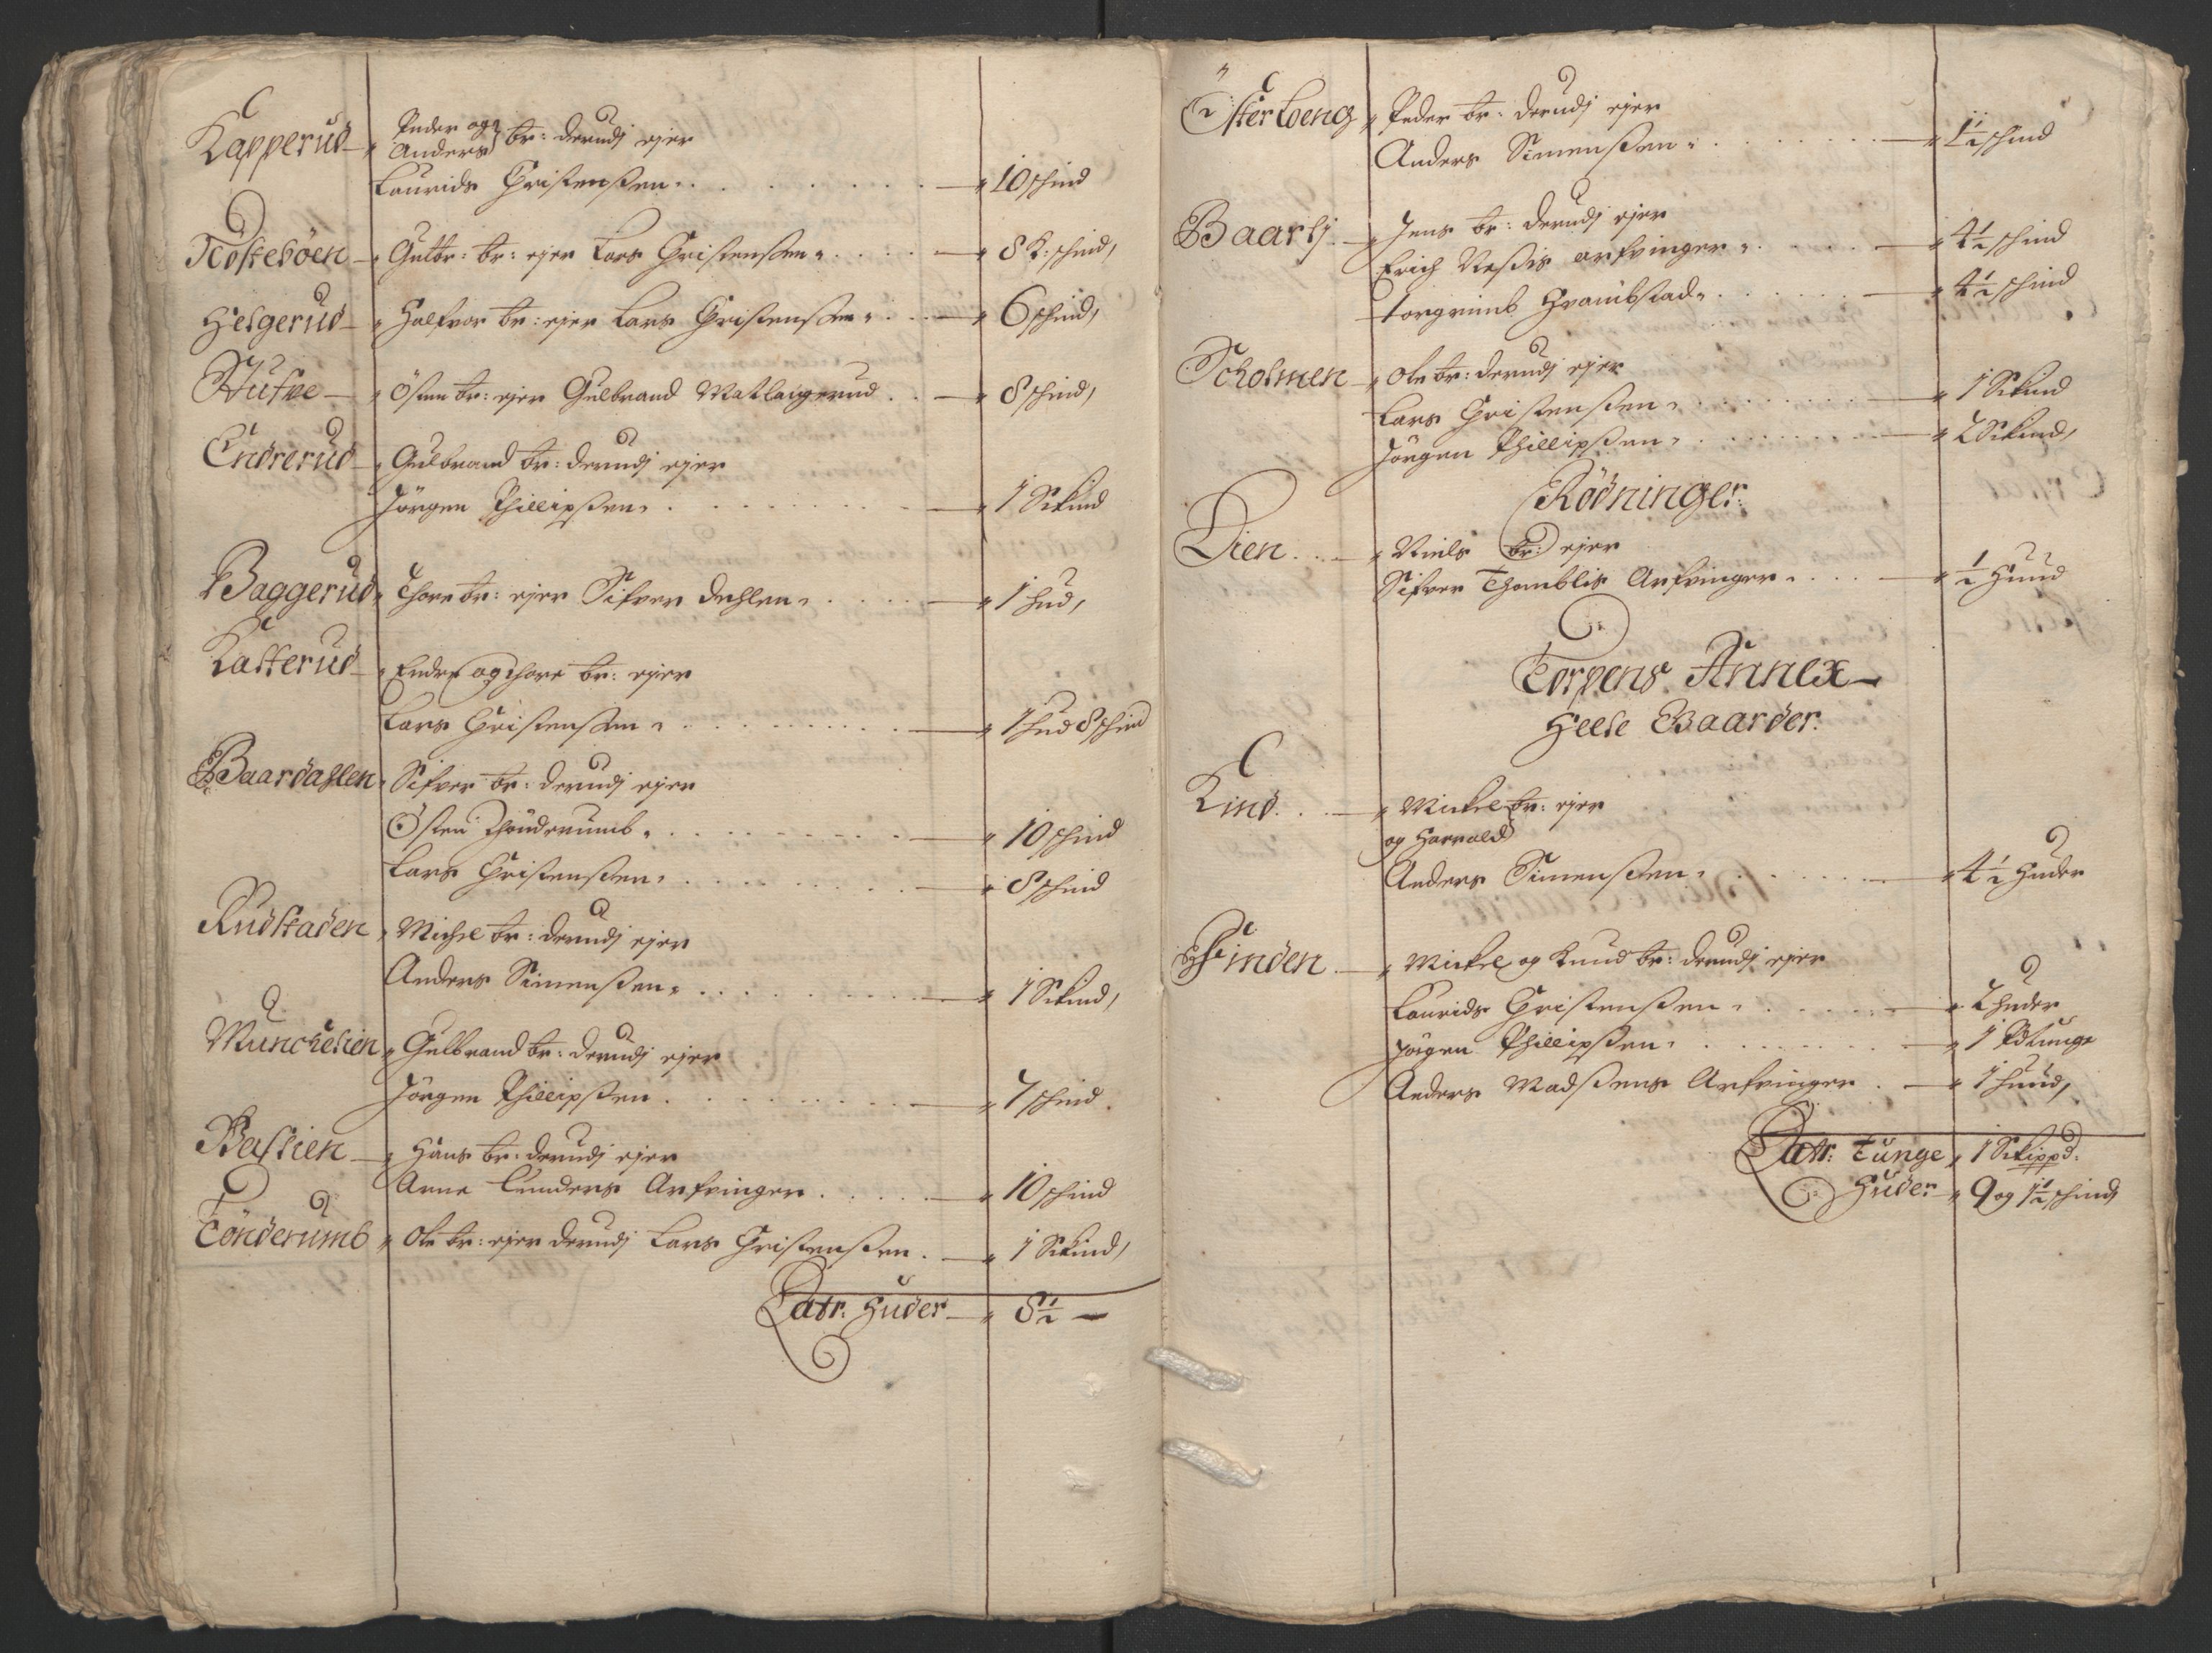 Kapperud — Peder og
Anders br: derudj ejer
Laurids Christensen. 10 schind
Tostebøen — Gulbr: br: ejer Lars Christensen. 8 K: schind,
Helgerud — Halfvor br: ejer Lars Christensen. 6 schind,
Østen br: ejer Gulbrand 8 schind,
Endrerud — Gulbrand br: derudj ejer
Jörgen Phillipsen. 1 Skind
Baggerud Thore br: ejer Sifver Dahlen. 1 hud,
Katterud — Endre og Thore br: ejer
Lars Christensen. 1 hud 8 schind
Baardahlen Sifver br: derudj ejer
Østen Thönderumb. 10 schind
Lars Christensen. 8 schind
Rudstaden Michel br: derudj ejer
Anders Simensen. 1 Skind,
Munchelien Gulbrand br: derudj ejer
Jörgen Phillipsen. 7 schind.
Baslien — Hans br: derudj ejer
Arne Lunders Arfvinger. 10 schind
Tönderumb Ole br: ejer derudj Lars Christensen. 1 Skind,
Latr: Huder — 8½ —
Østerloeng Peder br: derudj ejer
Anders Simensen. 1½ schind
Baarlj — Jens br: derudj ejer
Erich Nessis arfvinger. 4½ schind
Torgrimb Hvambstad. 4½ schind
Scholmen — Ole br: derudj ejer
Lars Christensen. 1 Skind
Jörgen Phillipsen. 2 Skind,
Rödninger:
Dien. Niels br: ejer
Sifver Thomblis Arfvinger. ½ Huud
Torpens Annex —
Heele Baarder:
Kind. Mickel br: ejer
og Harrald
Anders Simensen. 4½ Huder
Finden. Mickel og Knud br: derudj ejer
Laurids Christensen. 2 huder
Jörgen Phillipsen. 1 Fdtunge
Anders Madsens Arfvinger. 1 huud,
Latr: Tunge, 1 Skippd:
Huder — 9 og 1½ schind